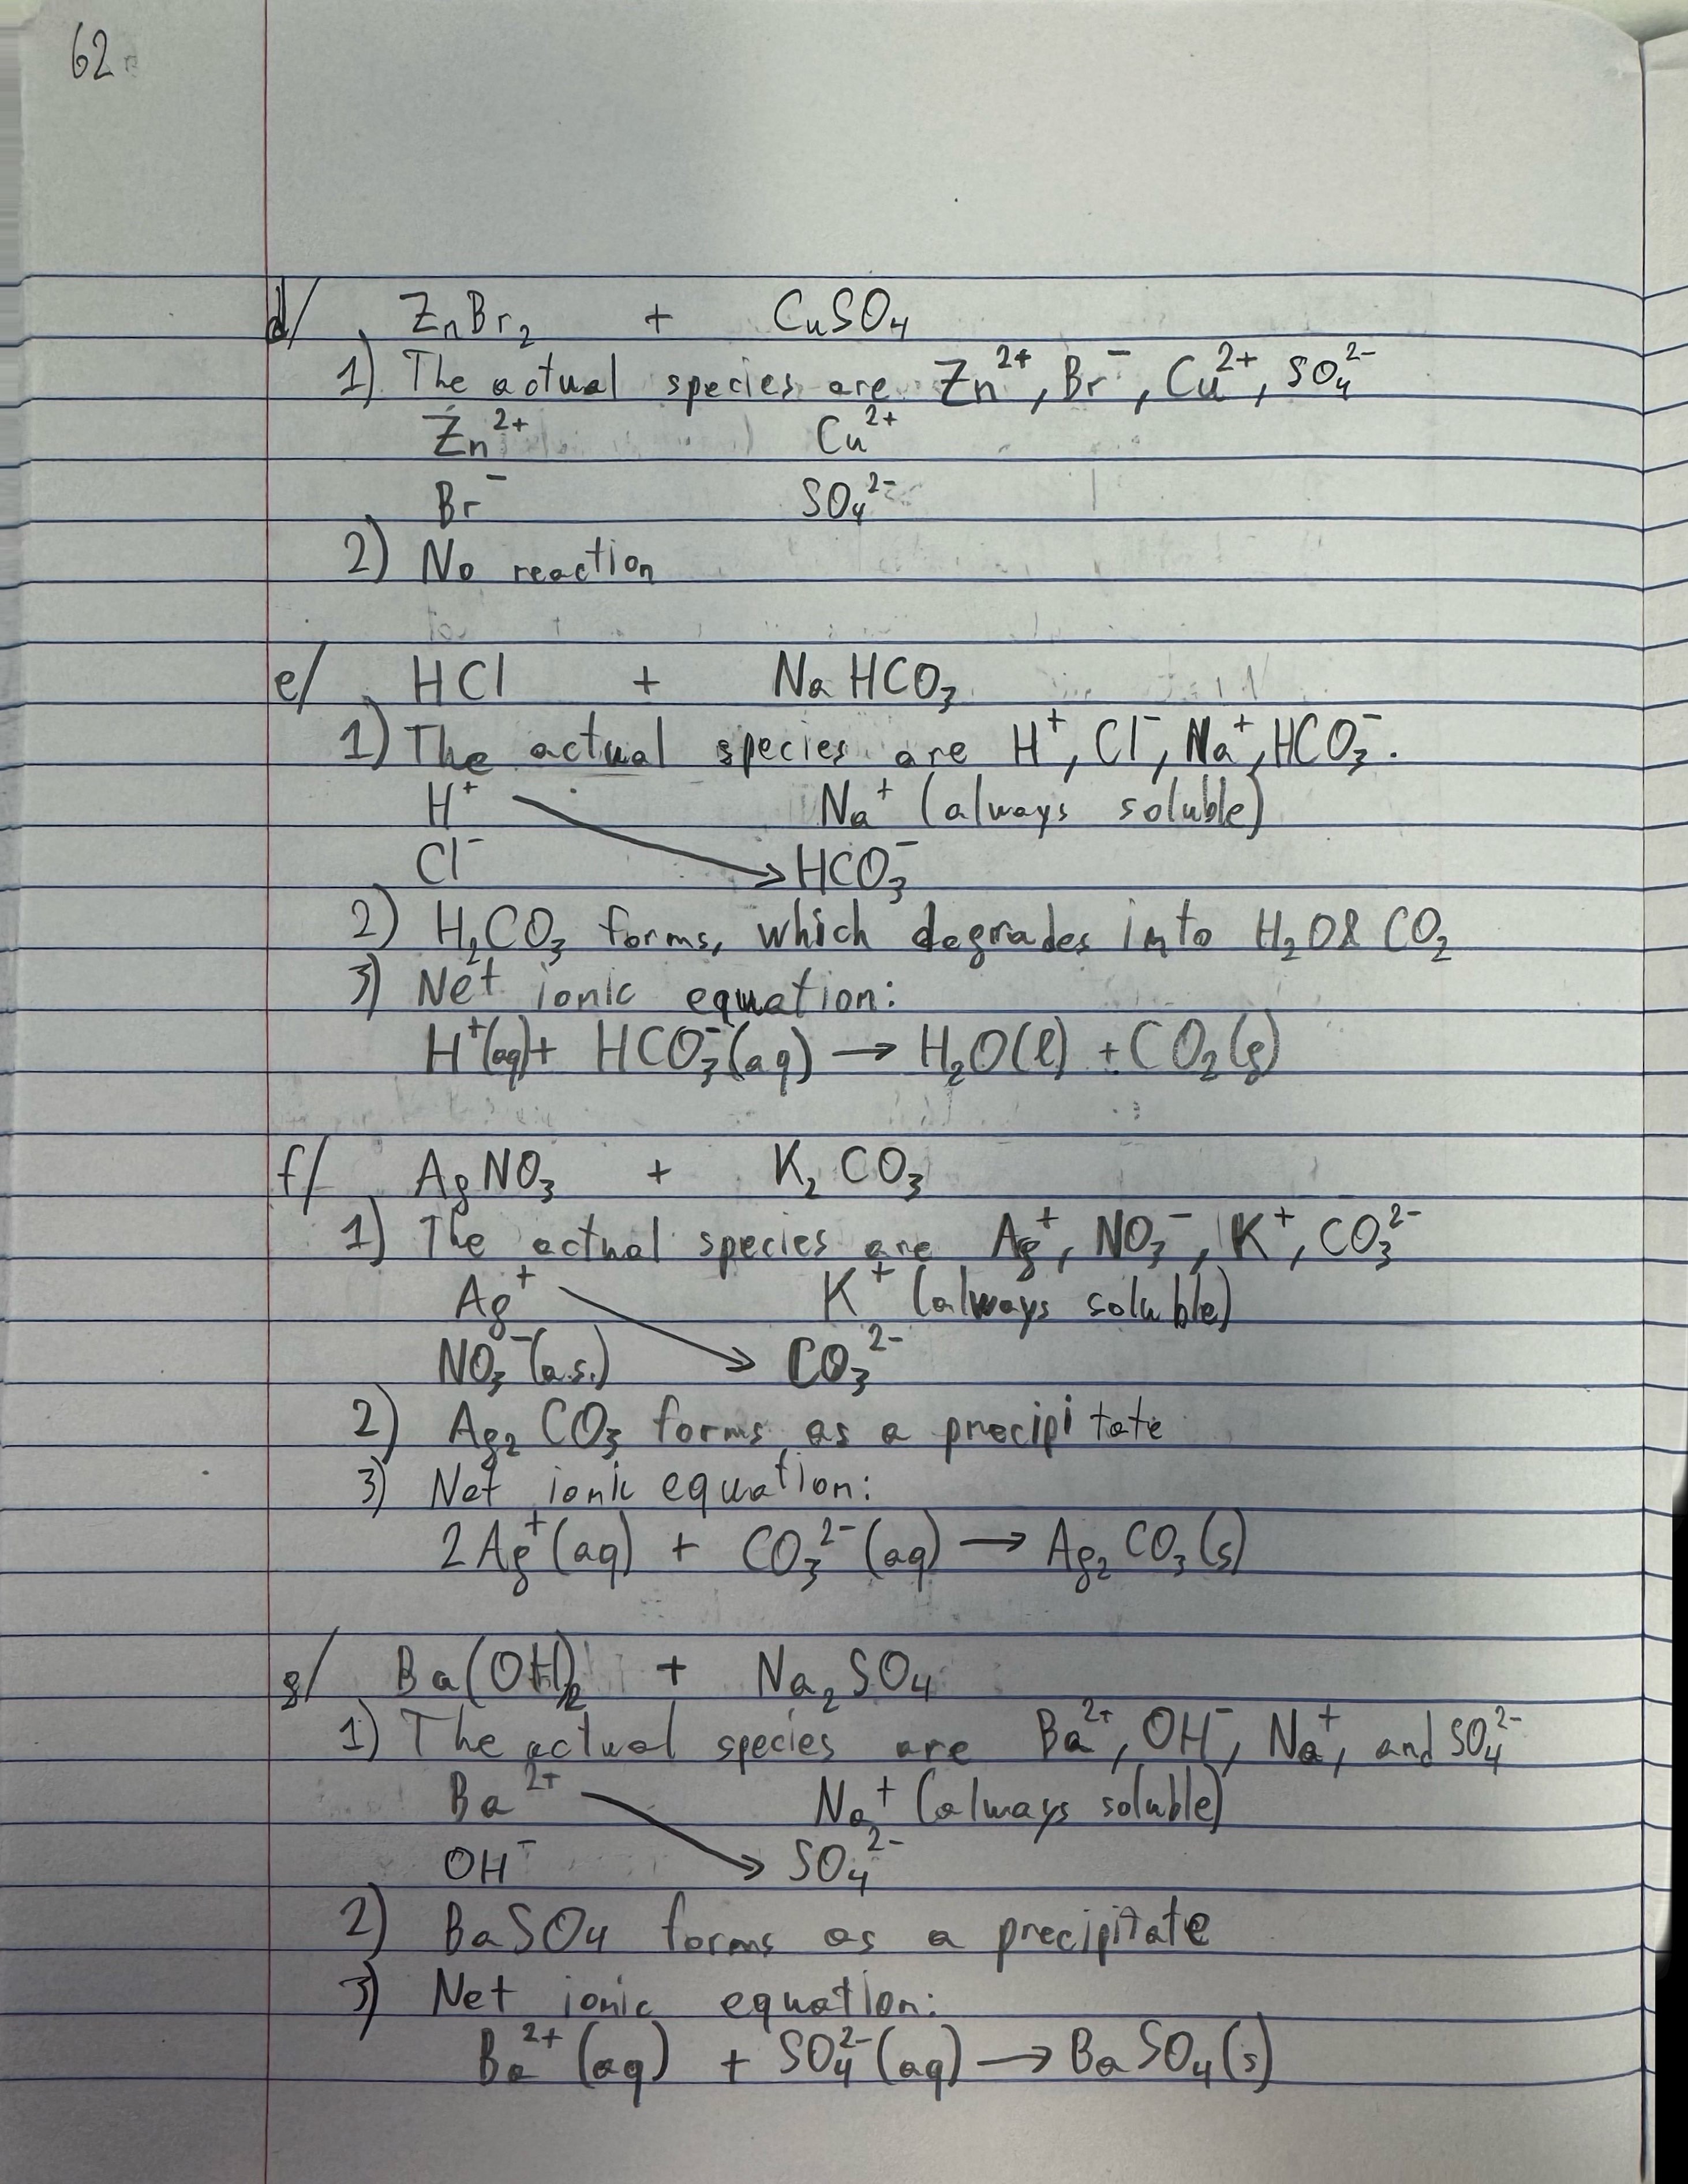 62.
d/ ZnBr₂ + CuSO₄
1) The actual species are Zn²⁺, Br⁻, Cu²⁺, SO₄²⁻
Zn²⁺ Cu²⁺
Br⁻ SO₄²⁻
2) No reaction
e/ HCl + NaHCO₃
1) The actual species are H⁺, Cl⁻, Na⁺, HCO₃⁻.
H⁺ Na⁺ (always soluble)
Cl⁻ → HCO₃⁻
2) H₂CO₃ forms, which degrades into H₂O & CO₂
3) Net ionic equation:
H⁺(aq) + HCO₃⁻(aq) → H₂O(l) + CO₂(g)
f/ AgNO₃ + K₂CO₃
1) The actual species are Ag⁺, NO₃⁻, K⁺, CO₃²⁻
Ag⁺ K⁺ (always soluble)
NO₃⁻(a.s.) → CO₃²⁻
2) Ag₂CO₃ forms as a precipitate
3) Net ionic equation:
2Ag⁺(aq) + CO₃²⁻(aq) → Ag₂CO₃(s)
g/ Ba(OH)₂ + Na₂SO₄
1) The actual species are Ba²⁺, OH⁻, Na⁺, and SO₄²⁻
Ba²⁺ Na⁺ (always soluble)
OH⁻ → SO₄²⁻
2) BaSO₄ forms as a precipitate
3) Net ionic equation:
Ba²⁺(aq) + SO₄²⁻(aq) → BaSO₄(s)